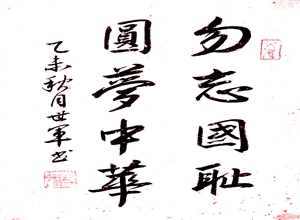 勿忘國耻
圓夢中華
乙未秋月世軍书